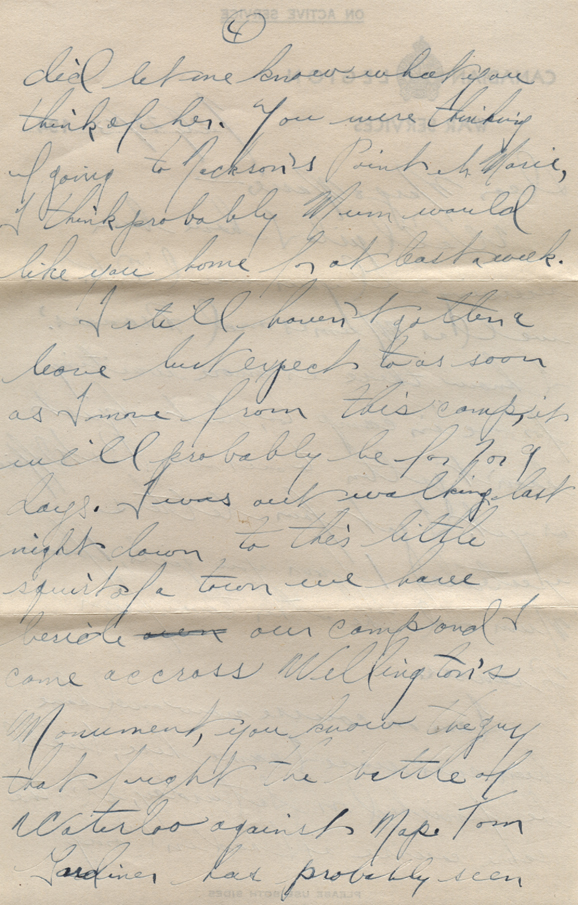 4
did let me know what you
think of her. You were thinking
of going to Jackson's Point eh Marie,
I think probably Mum would
like you home for at least a week.
I still haven't gotten a
leave but expect to as soon
as I move from this camp, it
will probably be for 7 or 9
days. I was out walking last
night down to this little
squirt of a town we have
beside our camp and I
came accross Wellington's
Monument, you know the guy
that fought the battle of
Waterloo against Nape Tom
Gardiner has probably seen
ON ACTIVE SERVICE
CANADIAN LEGION
WAR SERVICES
PLEASE USE BOTH SIDES